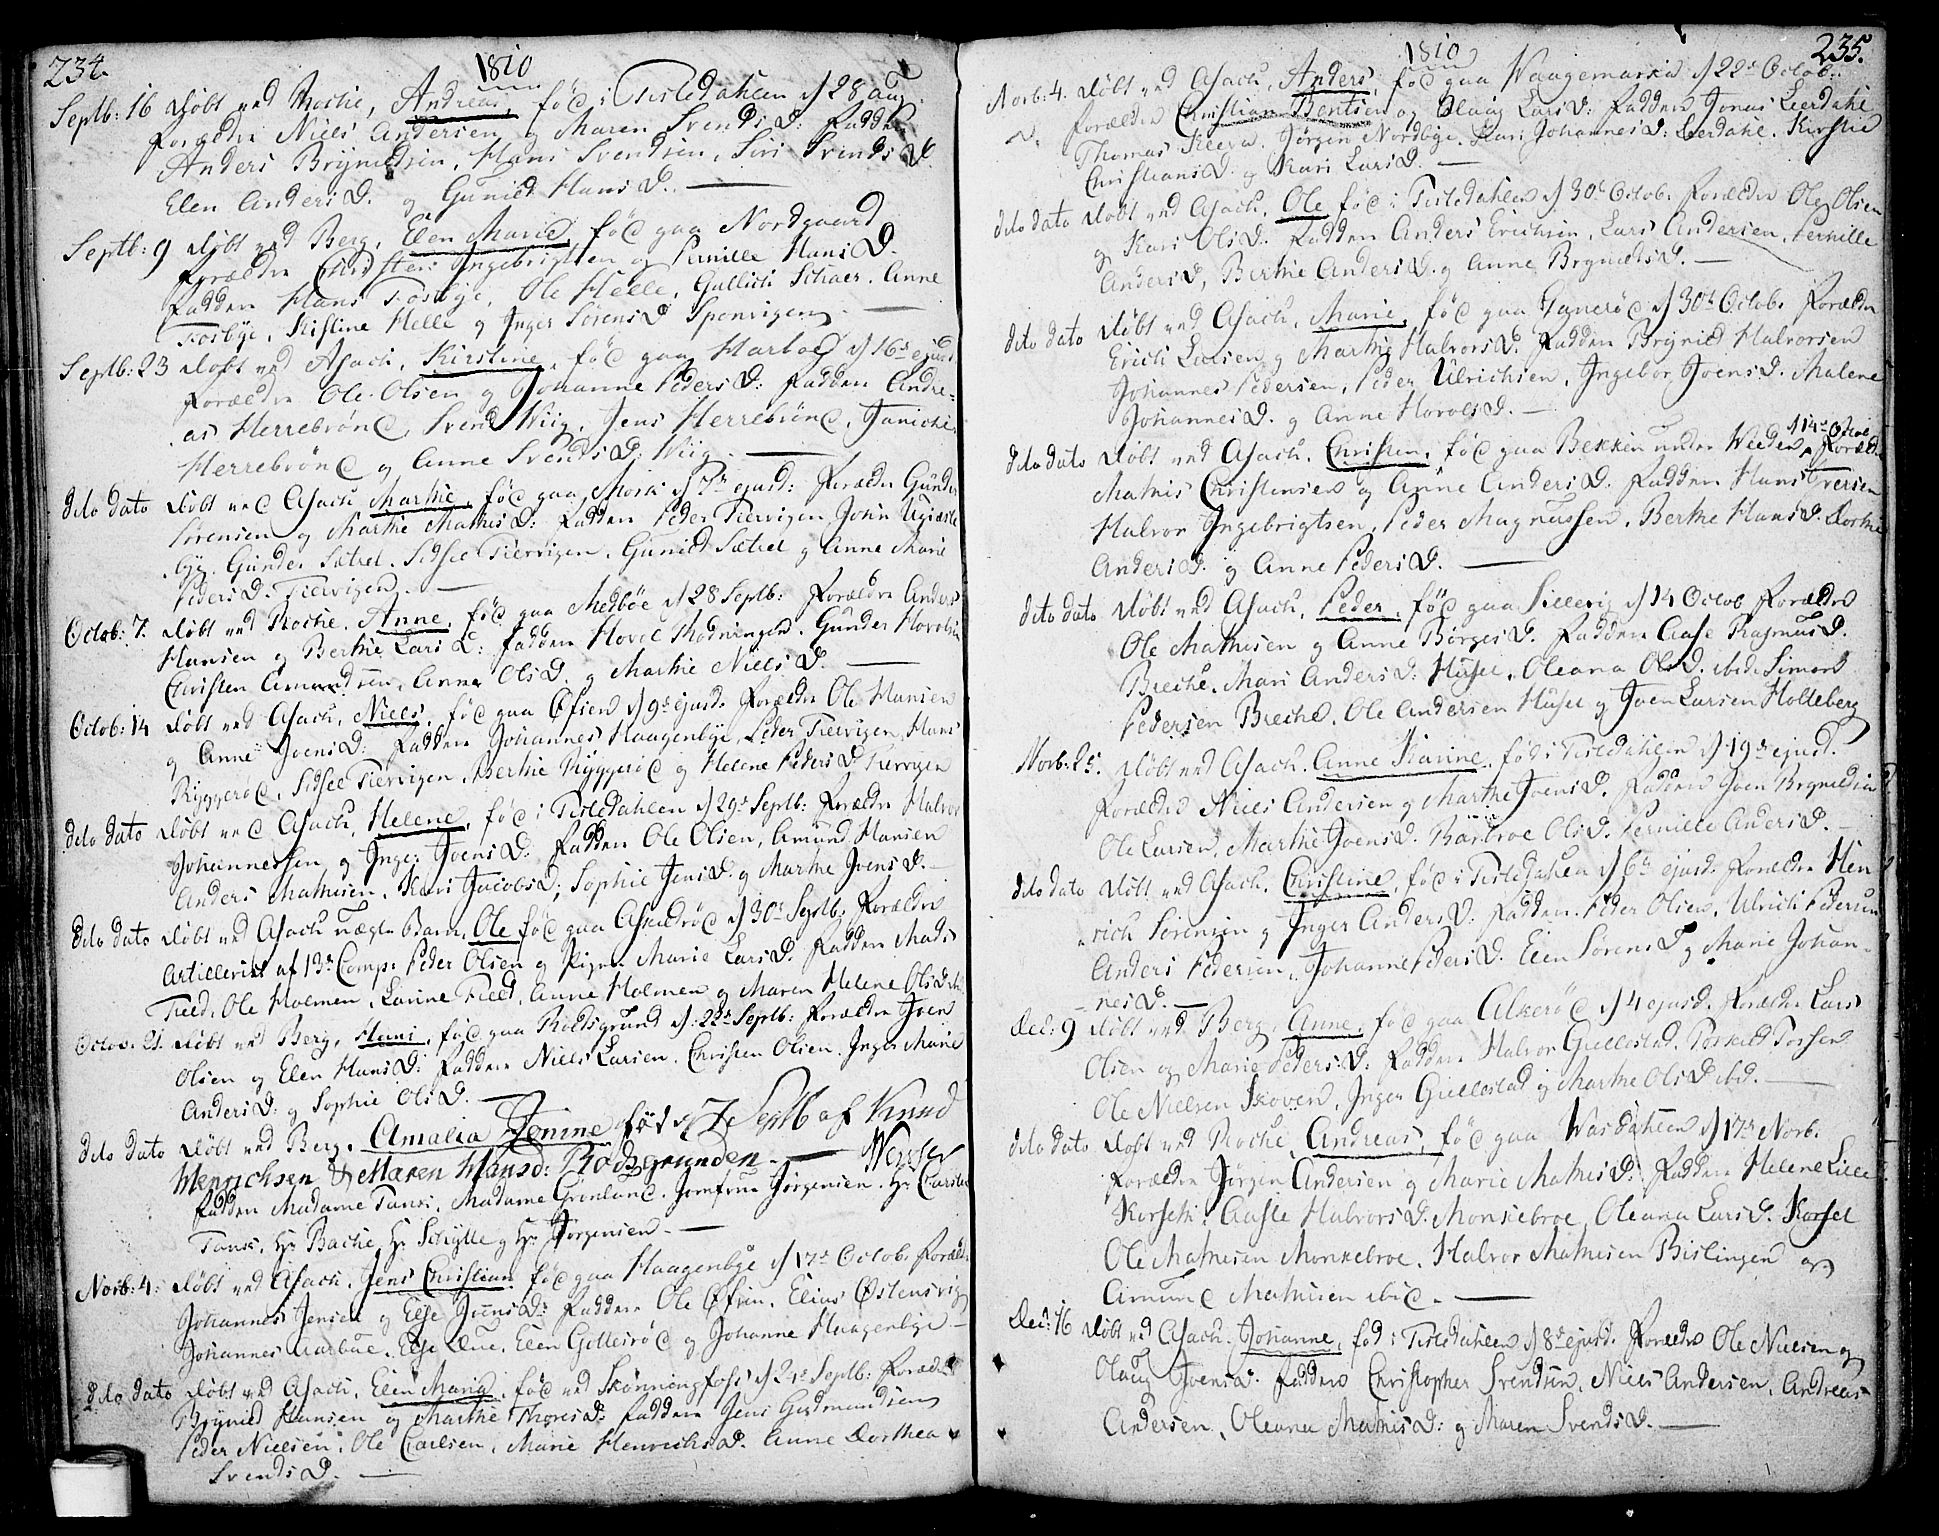 234.
1810
Septb: 16 Døbt ved Rocke, Andreas, fød i Tistedahlen d 28 Aug:
Forældre Niels Andersen og Maren Svends D: Faddere
Anders Brynildsen, Hans Svendsen, Siri Svends D.
Elen Anders D. og Gunild Hans D.
Septb: 9 Døbt ved Berg, Elen Marie, fød paa Nordgaard
Forældre Christen Ingebrigtsen og Pernille Hans D.
Faddere Hans Fosbye, Ole Helle, Gullich Schaer, Anne
Fosbye, Kistine Helle og Inger Sørens D Sponvigen
Septb: 23 Døbt ved Asach, Kirstine, fød paa Harboe d 16de ejusd
Forældre Ole Olsen og Johanne Peders D: Faddere Andre=
as Herrebrøne, Svend Wiig, Jens Herrebrøne, Janiche
Herrebrøne og Anne Svends D: Wiig.
dito dato Døbt ved Asach Marthe, fød paa Mork d 7de ejusd: Forældre Gunder
Sørensen og Marthe Mathis D: Faddere Peder Tiervigen John
bye. Gunder Sætrel. Sidsel Tiervigen. Gunild Sætrel og Anne Marie
Peders D. Tiervigen.
Octob: 7. Døbt ved Rocke. Anne, fød paa Medbøe d 28 Septb: Forældre Anders
Hansen og Berthe Lars D: Faddere Hovel Rødningen. Gunder Hovelsen
Christen Amundsen, Anne Ols D. og Marthe Niels D.
Octob: 14 Døbt ved Asach, Niels, fød paa Øfsien d 9de ejusd. Forældre Ole Hansen
og Anne Joens D: Faddere Johannes Haagenbye, Peder Tiervigen, Hans
Ryggerød, Sidsel Tiervigen, Berthe Ryggerød og Helene Peders D Tiervigen
dito dato Døbt ved Asach, Helene, fød i Tistedahlen d 29de Septb: Forældre Halvor
Johannessen og Inger Joens D: Faddere Ole Olsen, Amund Hansen
Anders Mathisen, Kari Jacobs D; Sophie Jens D. og Marthe Joens D.
dito dato Døbt ved Asach Uægte Barn, Ole fød paa Askedrød d 30te Septb: Forældre
Artillerist af 13de Comp: Peder Olsen og Pigen Marie Lars D. Faddere Mads
Field, Ole Holmen, Larine Field, Anne Holmen og Maren Helene Ols D
Octob. 21. Døbt ved Berg, Hans, fød paa Rødsgrund d: 22de Septb: Forældre Joen
Olsen og Elen Hans D: Faddere Niels Larsen. Christen Olsen. Inger Marie
Anders D: og Sophie Ols D.
dito dato Døbt ved Berg. Amalia Jenine født d 7 Septb af Knud
Henrichsen & Maren Hansd: Rødsgrunden.
Faddere Madame Tanck, Madame Grønlund. Jomfrue Jørgensen. Hr Carsten
Tank, Hr Bache, Hr Schylle og Hr Jørgensen.
Novb: 4: Døbt ved Asach. Jens Christian, fød paa Haagenbye d 17de Octob. Foræld:
Johannes Jensen og Else Joens D: Faddere Ole Øfsien. Elias Østensvig
Johannes Aarbue. Else Due. Elen Gellesrød og Johanne Haagenbye
dito dato Døbt ved Asach. Elen Maria, fød ved Skønningfoss d 24de Septb: Forældre
Brynild Hansen og Marthe Thores D: Faddere Jens Gudmundsen
Peder Nielsen. Ole Carlsen, Marie Henrichs D. Anne Dorthea
Svends D.
1810
235.
Novb: 4. Døbt ved Asach, Anders, fød paa Waagemarka d 22de Octob:
Forældre Christian Bentsen og Olaug Lars D: Faddere Jonas Leerdahl
Thomas Kleeva. Jørgen Nordbye. Kari Johannes D: Leerdahl. Kirstie
Christians D. og Kari Lars D.
dito dato Døbt ved Asach, Ole fød i Tistedahlen d 30te Octob. Forældre Ole Olsen
og Kari Ols D. Faddere Anders Erichsen, Lars Andersen, Pernille
Anders D, Berthe Anders D. og Anne Brynilds D.
dito dato Døbt ved Asach, Marie, fød paa Gynerød d 30te Octob: Forældre
Erich Larsen og Marthe Halvors D. Faddere Brynild Halvorsen
Johannes Pedersen, Peder Ulrichsen, Ingebor Joens D. Malene
Johannes D. og Anne Hovels D.
dito dato Døbt ved Asach. Christen, fød paa Bekken under Weeden d 14de Octob Forældre
Mathis Christensen og Anne Anders D. Faddere Hans Iversen
Halvor Ingebrigtsen, Peder Magnussen, Berthe Hans D. Dorthe
Anders D. og Anne Peders D.
dito dato Døbt ved Asach, Peder, fød paa Lillevig d 14 Octob Forældre
Ole Mathisen og Anne Børges D. Faddere Aase Rasmus D.
Breche, Mari Anders D: Husel, Oleana Ols D. ibid. Simon
Pedersen Breche. Ole Andersen Husel og Joen Larsen Holteberg
Novb: 25. Døbt ved Asach. Anne Karine, fød i Tistedahlen d 19de ejusd.
Forældre Niels Andersen og Marthe Joens D. Faddere Joen Brynildsen
Ole Larsen, Marthe Joens D. Barbroe Ols D. Pernille Anders D.
dito dato Døbt ved Asach. Christine, fød i Tistedahlen d 6te ejusd. Forældre Hen
rich Sørensen og Inger Anders D: Faddere. Peder Olsen, Ulrich Pedersen
Anders Pedersen, Johanne Peders D. Elen Sørens D og Marie Johan=
=nes D.
Dec: 9 Døbt ved Berg, Anne, fød paa Alkerød d 4 ejusd. Forældre Lars
Olsen og Marie Peders: D: Faddere Halvor Giellestad, Torkild Torsen
Ole Nielsen Skoven, Inger Giellestad og Marthe Ols D ibd.
dito dato Døbt ved Rocke, Andreas, fød paa Wasdahlen d 17de Novb.
Forældre Jørgen Andersen og Marie Mathis D: Faddere Helene Lille
Korseth. Aasle Halvors D. Monkebroe, Oleana Lars D. Korset
Ole Mathisen Monkebroe, Halvor Mathisen Bislingen og
Amund Mathisen ibid.
Dec: 16 Døbt ved Asach. Johanne, fød i Tistedahlen d 8de ejusd. Forældre Ole Nielsen og
Olaug Joens D. Faddere Christopher Svendsen, Niels Andersen, Andreas
Andersen, Oleana Mathis D: og Maren Svends D.